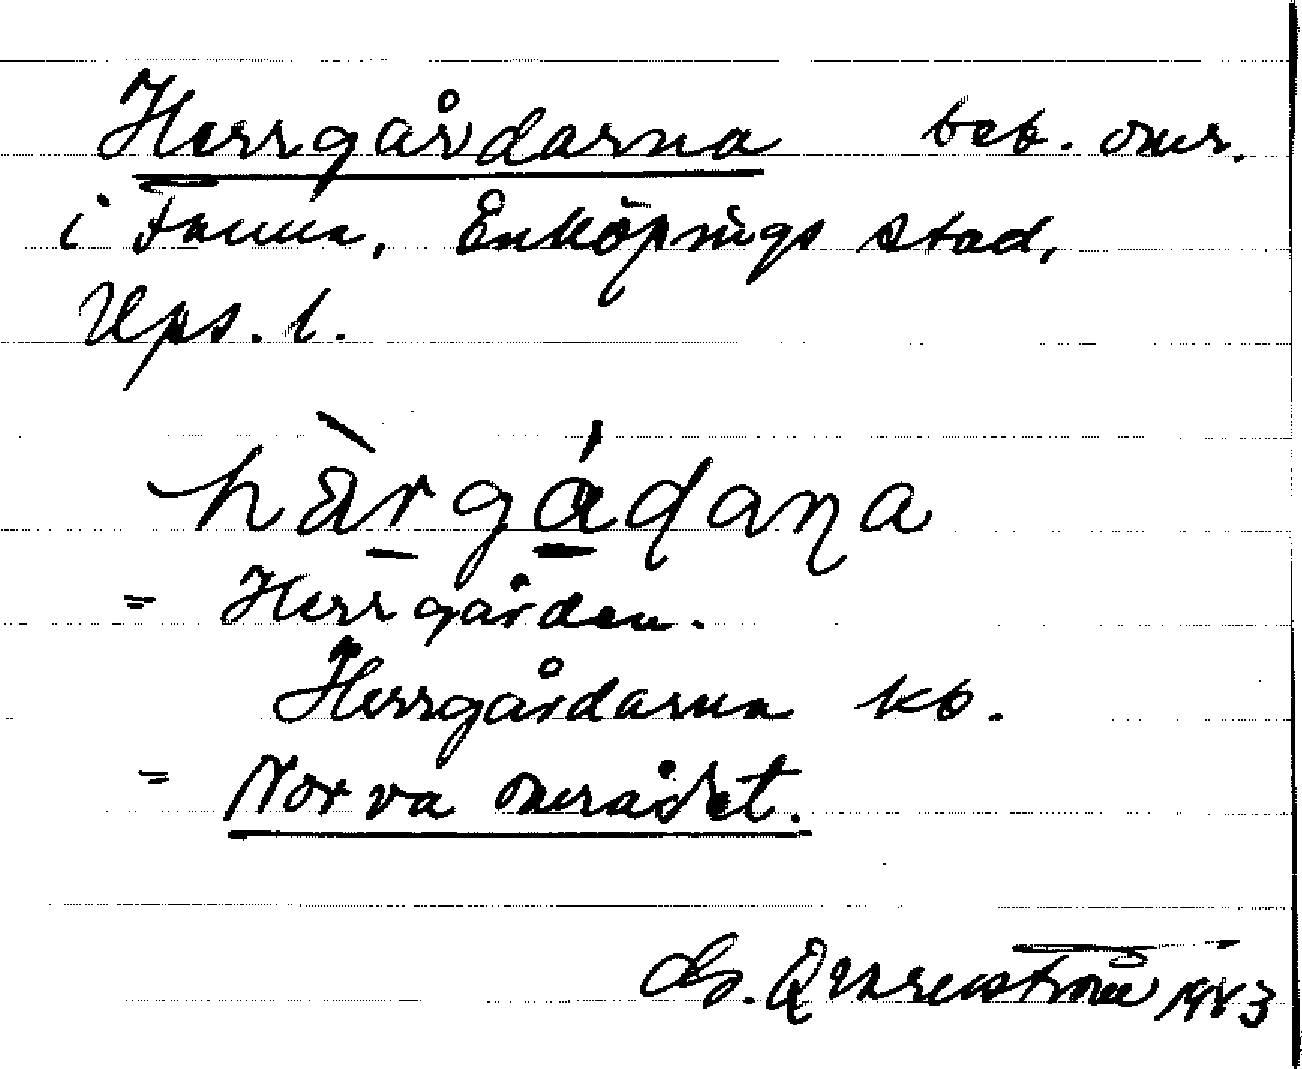 Herrgårdarna beb. omr.
i Fanna, Enköpings stad,
Ups. l.
hàrgádaņa
= Herrgården.
Herrgårdarna kb.
= Norva området.
G. Qvarnström 1983